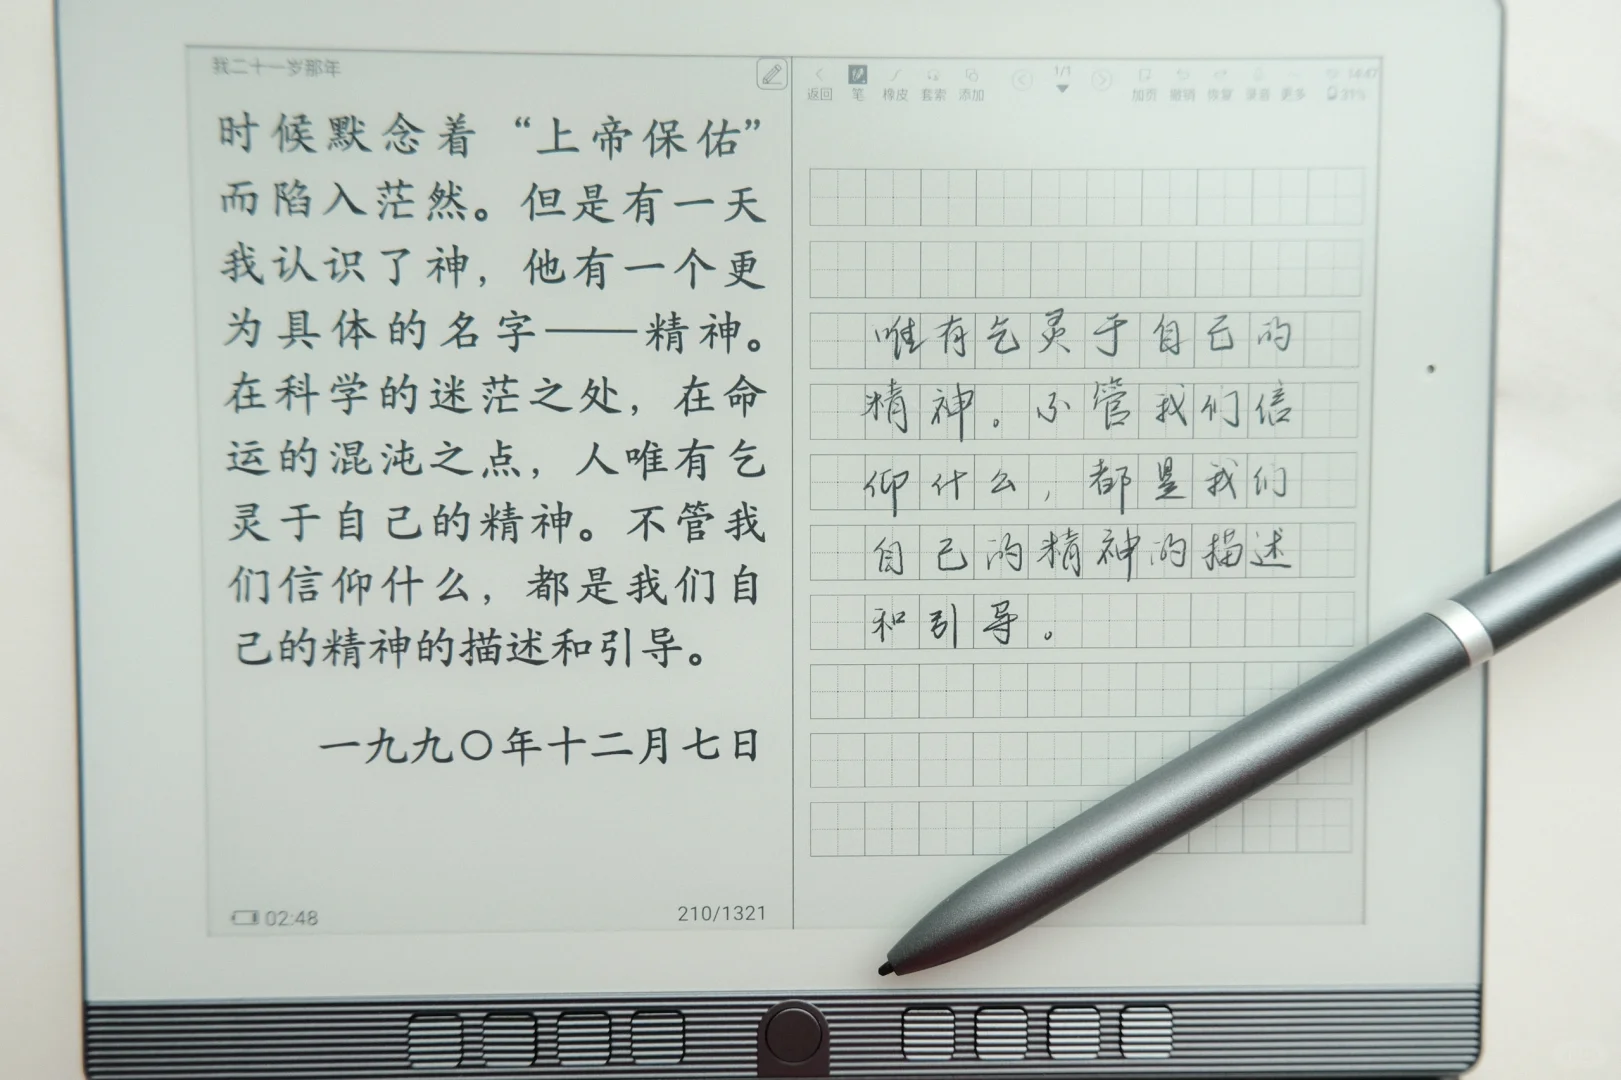 我二十一岁那年
时候默念着“上帝保佑”
而陷入茫然。但是有一天
我认识了神，他有一个更
为具体的名字——精神。
在科学的迷茫之处，在命
运的混沌之点，人唯有乞
灵于自己的精神。不管我
们信仰什么，都是我们自
己的精神的描述和引导。
一九九〇年十二月七日
02:48
210/1321
返回 笔 橡皮 套索 添加 1/1 加页 撤销 恢复 录音 更多
14:47
31%
唯有乞灵于自己的
精神。不管我们信
仰什么，都是我们
自己的精神的描述
和引导。